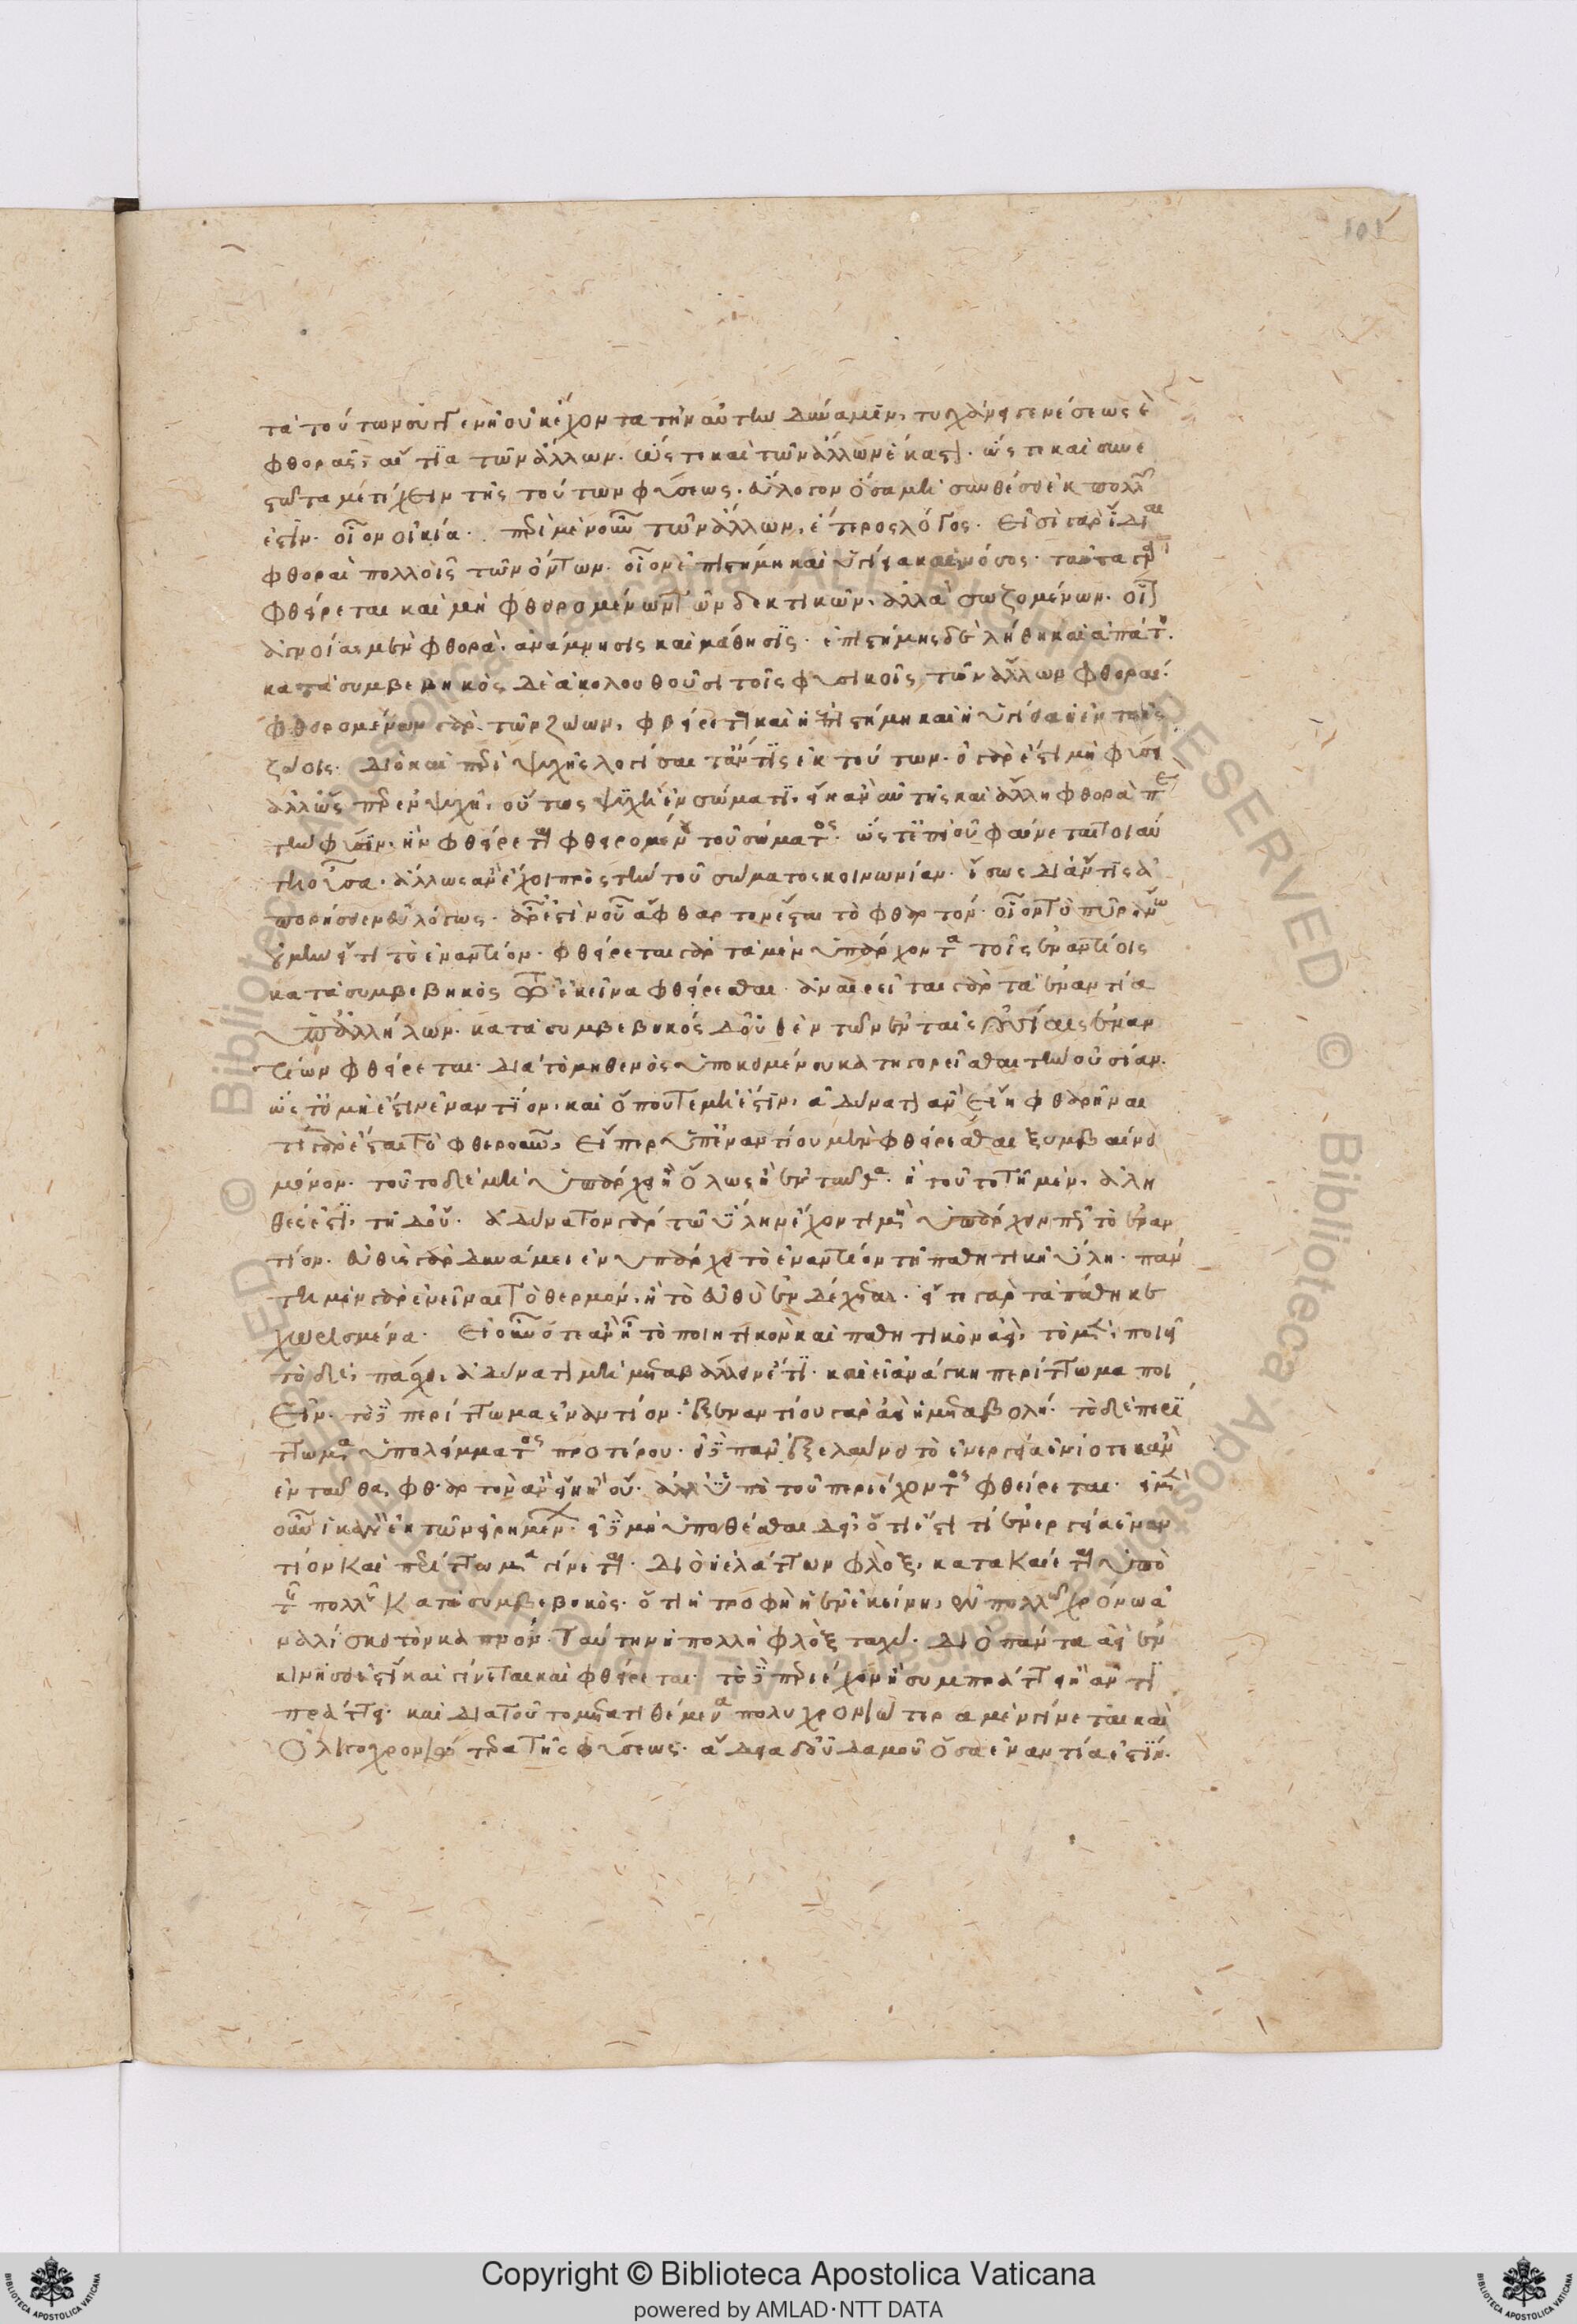 101
τὰ τούτων οὐσίαν ἢ οὐκ ἔχοντα τὴν αὐτὴν δύναμιν, τυγχάνει γενέσεως ἢ
φθορᾶς, αἴτια τῶν ἄλλων. ὥστε καὶ τῶν ἄλλων ἕκαστον. ὥστε καὶ συνε
στῶτα μετέχειν τῆς τούτων φύσεως. εὔλογον ὅσα μὴ συνθέσει ἐκ πολλῶν
ἐστιν. οἷον οἰκία. περὶ μὲν οὖν τῶν ἄλλων, ἕτερος λόγος. Εἰσὶ γὰρ ἴδιαι
φθοραὶ πολλοῖς τῶν ὄντων. οἷον ἐπιστήμη καὶ ὑγίεια καὶ νόσος. ταῦτα γὰρ
φθείρεται καὶ μὴ φθειρομένων τῶν δεκτικῶν, ἀλλὰ σωζομένων. οἷον
ἀγνοίας μὲν φθορὰ, ἀνάμνησις καὶ μάθησις. ἐπιστήμης δὲ λήθη καὶ ἀπάτη.
κατὰ συμβεβηκὸς δὲ ἀκολουθοῦσι τοῖς φυσικοῖς τῶν ἄλλων φθοραί.
φθειρομένων γὰρ τῶν ζώων, φθείρεται καὶ ἡ ἐπιστήμη καὶ ἡ ὑγίεια ἡ ἐν τοῖς
ζώοις. Διὸ καὶ περὶ ψυχῆς λογίσαιτ' ἄν τις ἐκ τούτων. εἰ γὰρ ἐστι μὴ φύσει
ἀλλ' ὥσπερ ἐν ψυχῆ, οὕτως ψυχὴ ἐν σώματι, εἴη ἂν αὐτῆς καὶ ἄλλη φθορὰ παρὰ
τὴν φύσιν, ἣν φθείρεται φθειρομένου τοῦ σώματος. ὥστ' ἐπεὶ οὐ φαίνεται τοιαύ
τη οὖσα. ἄλλως ἂν ἔχοι πρὸς τὴν τοῦ σώματος κοινωνίαν. ἴσως δ' ἄν τις ἀ
πορήσειεν εὐλόγως. ἆρ' ἔστιν οὗ ἄφθαρτον ἔσται τὸ φθαρτόν. οἷον τὸ πῦρ ἄνω
οὗ μὴ ἔστι τὸ ἐναντίον. φθείρεται γὰρ τὰ μὲν ὑπάρχοντα τοῖς ἐναντίοις
κατὰ συμβεβηκὸς τῷ ἐκεῖνα φθείρεσθαι. ἀναιρεῖται γὰρ τὰ ἐναντία
ὑπ' ἀλλήλων. κατὰ συμβεβηκὸς δ' οὐθὲν τῶν ἐν ταῖς οὐσίαις ἐναν
τίων φθείρεται. διὰ τὸ μηθενὸς ὑποκειμένου κατηγορεῖσθαι τὴν οὐσίαν.
ὥστ' ᾧ μὴ ἔστιν ἐναντίον, καὶ ὅπου μὴ ἔστιν, ἀδύνατον ἂν εἴη φθαρῆναι
τί γὰρ ἔσται τὸ φθεροῦν, εἴπερ ὑπ' ἐναντίου μὲν φθείρεσθαι συμβαίνει
μόνον. τοῦτο δὲ μὴ ὑπάρχει ἢ ὅλως ἢ ἐνταῦθα. ἢ τοῦτο τῆ μὲν, ἀλη
θές ἐστι, τῆ δ' οὔ. ἀδύνατον γὰρ τῶ ὕλην ἔχοντι μὴ ὑπάρχειν πως τὸ ἐναν
τίον. εὐθὺς γὰρ δυνάμει ἐνυπάρχει τὸ ἐναντίον τῆ παθητικῆ ὕλη. πάν
τη μὲν γὰρ ἐνεῖναι τὸ θερμόν, ἢ τὸ εὐθὺ ἐνδέχεται. ἔσται γὰρ τὰ πάθη κε
χωρισμένα. Εἰ οὖν ὅταν ἅμα ᾖ τὸ ποιητικὸν καὶ παθητικὸν ἀεὶ, τὸ μὲν, ποιεῖ
τὸ δὲ, πάσχει, ἀδύνατον μὴ μεταβάλλειν. ἔτι καὶ εἰ ἀνάγκη περίττωμα ποι
εῖν. τὸ δὲ περίττωμα ἐναντίον. ἐξ ἐναντίου γὰρ ἀεὶ ἡ μεταβολή. τὸ δὲ περίτ
τωμα ὑπόλειμμα τοῦ προτέρου. εἰ δὲ πᾶν ἐξελαύνει τὸ ἐνεργείᾳ ἐναντίον κἂν
ἐνταῦθα, ἄφθαρτον ἂν εἴη ἢ οὔ. ἀλλ' ὑπὸ τοῦ περιέχοντος φθείρεται. εἰ μὲν
οὖν ἱκανὸν ἐκ τῶν εἰρημένων. εἰ δὲ μὴ ὑποθέσθαι δεῖ, ὅτι ἔνεστί τι ἐνεργείᾳ ἐναν
τίον καὶ περίττωμα γίνεται. Διὸ ἡ ἐλάττων φλὸξ, κατακαίεται ὑπὸ
τῆς πολλῆς κατὰ συμβεβηκὸς. ὅτι ἡ τροφὴ ἣν ἐκείνη, ἐν πολλῶ χρόνω ἀ
ναλίσκει τὸν καπνόν. ταύτην ἡ πολλὴ φλὸξ ταχύ. Διὸ πάντα ἀεὶ ἐν
κινήσει ἐστὶ καὶ γίνεται καὶ φθείρεται. τὸ δὲ περιέχον ἢ συμπράττει ἢ ἀντι
πράττει. καὶ διὰ τοῦτο μετατιθέμενα πολυχρονιώτερα μὲν γίνεται καὶ
ὀλιγοχρονιώτερα τῆς φύσεως. ἀΐδια δ' οὐδαμοῦ ὅσα ἐναντία ἐστίν.
Copyright © Biblioteca Apostolica Vaticana
powered by AMLAD·NTT DATA